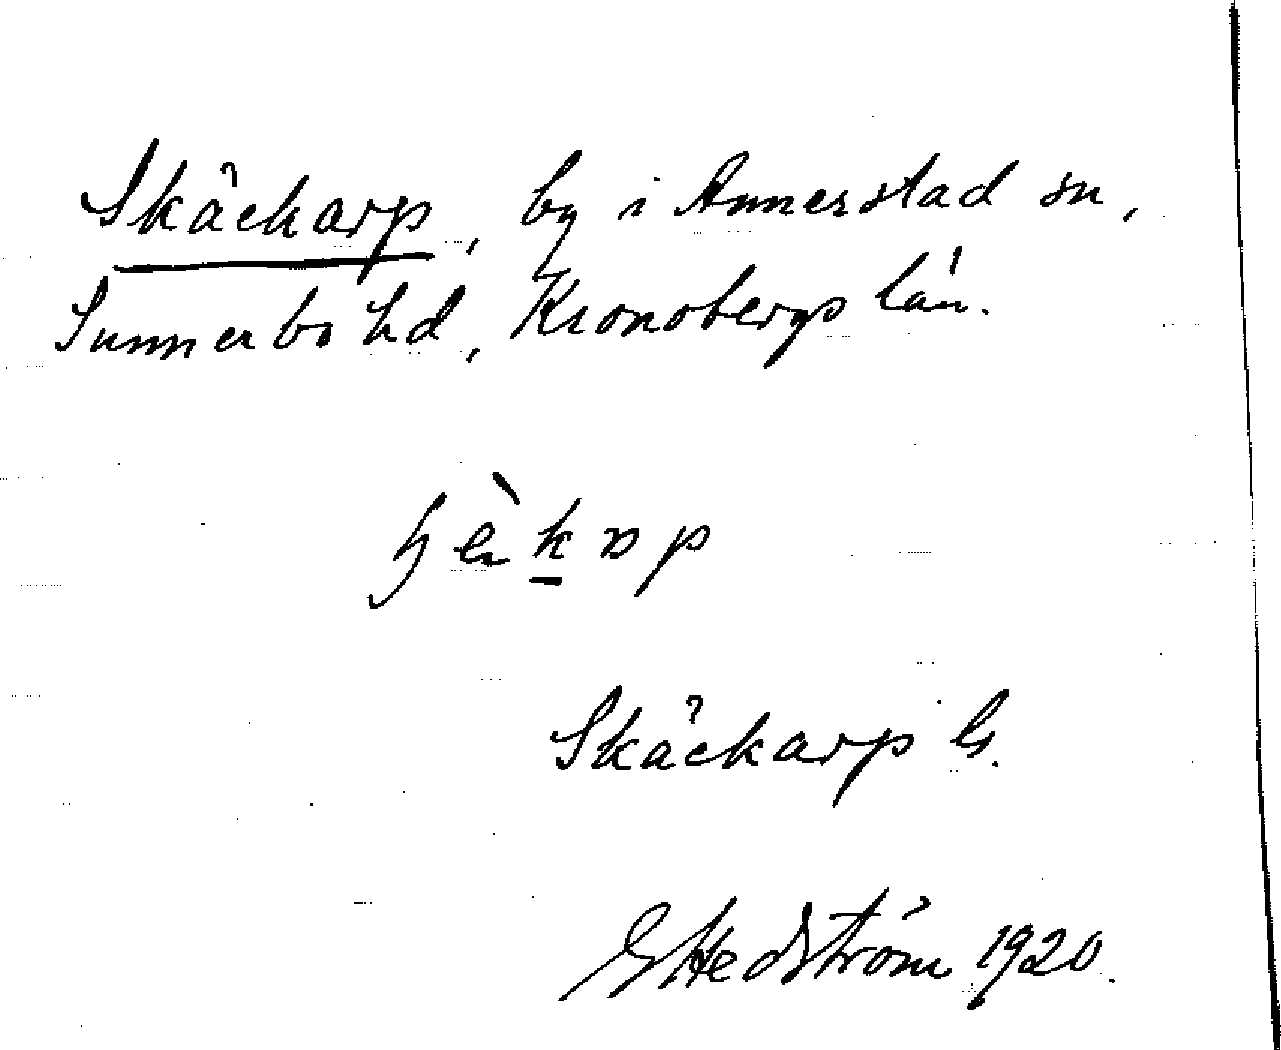 Skäckarp, by i Annerstad sn,
Sunnerbo hd, Kronobergs län.
Skäckarp G.
G Hedström 1920.